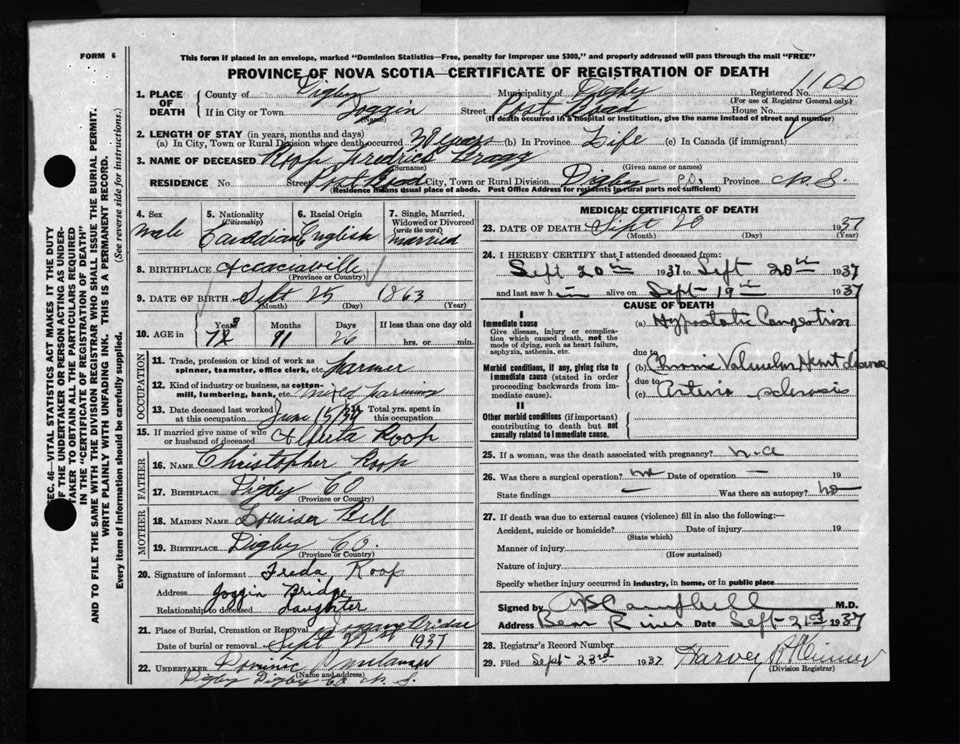 FORM 5
This form if placed in an envelope, marked "Dominion Statistics—Free, penalty for improper use $300," and properly addressed will pass through the mail "FREE"
PROVINCE OF NOVA SCOTIA—CERTIFICATE OF REGISTRATION OF DEATH
SEC. 46—VITAL STATISTICS ACT MAKES IT THE DUTY
OF THE UNDERTAKER OR PERSON ACTING AS UNDER-
TAKER TO OBTAIN ALL THE PARTICULARS REQUIRED
IN THE "CERTIFICATE OF REGISTRATION OF DEATH"
AND TO FILE THE SAME WITH THE DIVISION REGISTRAR WHO SHALL ISSUE THE BURIAL PERMIT.
WRITE PLAINLY WITH UNFADING INK. THIS IS A PERMANENT RECORD.
Every item of information should be carefully supplied. (See reverse side for instructions.)
1. PLACE OF DEATH
County of Digby Municipality of Digby Registered No. 1100
(For use of Registrar General only)
If in City or Town Joggin Street Post Road House No.
(Name)
(If death occurred in a hospital or institution, give name instead of street and number)
2. LENGTH OF STAY (in years, months and days)
(a) In City, Town or Rural Division where death occurred years (b) In Province Life (c) In Canada (if immigrant)
3. NAME OF DECEASED Roop Fredrick
(Surname) (Given name or names)
RESIDENCE No Street Post Road City, Town or Rural Division Digby P.O. Province N.S.
(Residence means usual place of abode. Post Office Address for residents in rural parts not sufficient)
4. Sex
male
5. Nationality
(Citizenship)
Canadian
6. Racial Origin
English
7. Single, Married,
Widowed or Divorced
(write the word)
married
8. BIRTHPLACE Acaciaville
(Province or Country)
9. DATE OF BIRTH Sept 25 1863
(Month) (Day)
10. AGE in
Years Months Days If less than one day old
11 26 hrs. or min.
OCCUPATION
11. Trade, profession or kind of work as
spinner, teamster, office clerk, etc. Farmer
12. Kind of industry or business, as cotton-
mill, lumbering, bank, etc. mixed farming
13. Date deceased last worked Total yrs. spent in
at this occupation June 15/ this occupation
15. If married give name of wife
or husband of deceased Alfreta Roop
FATHER
16. NAME Christopher Roop
17. BIRTHPLACE Digby Co
(Province or Country)
MOTHER
18. MAIDEN NAME Bell
19. BIRTHPLACE Digby Co.
(Province or Country)
20. Signature of informant Freda Roop
Address Joggin Bridge
Relationship to deceased Daughter
21. Place of Burial, Cremation or Removal
Date of burial or removal Sept 1937
22. UNDERTAKER Dominic
(Name and address)
Digby Digby Co N.S.
MEDICAL CERTIFICATE OF DEATH
23. DATE OF DEATH Sept 20 1937
(Month) (Day) (Year)
24. I HEREBY CERTIFY that I attended deceased from:
Sept 20th 1937 to Sept 20th 1937
and last saw him alive on Sept 19th 1937
CAUSE OF DEATH
I
Immediate cause
Give disease, injury or complica-
tion which caused death, not the
mode of dying, such as heart failure,
asphyxia, asthenia, etc.
(a) Hypostatic Congestion
due to
Morbid conditions, if any, giving rise to
immediate cause (stated in order
proceeding backwards from im-
mediate cause).
(b) Chronic Valvular Heart disease
due to
(c) Arterio sclerosis
II
Other morbid conditions (if important)
contributing to death but not
causally related to immediate cause.
25. If a woman, was the death associated with pregnancy?
26. Was there a surgical operation? no Date of operation — 19
State findings — Was there an autopsy? no
27. If death was due to external causes (violence) fill in also the following:—
Accident, suicide or homicide? Date of injury 19
(State which)
Manner of injury
(How sustained)
Nature of injury
Specify whether injury occurred in industry, in home, or in public place
Signed by Campbell M.D.
Address Bear River Date Sept-21st 1937
28. Registrar's Record Number
29. Filed Sept-23rd 1937 Harvey
(Division Registrar)